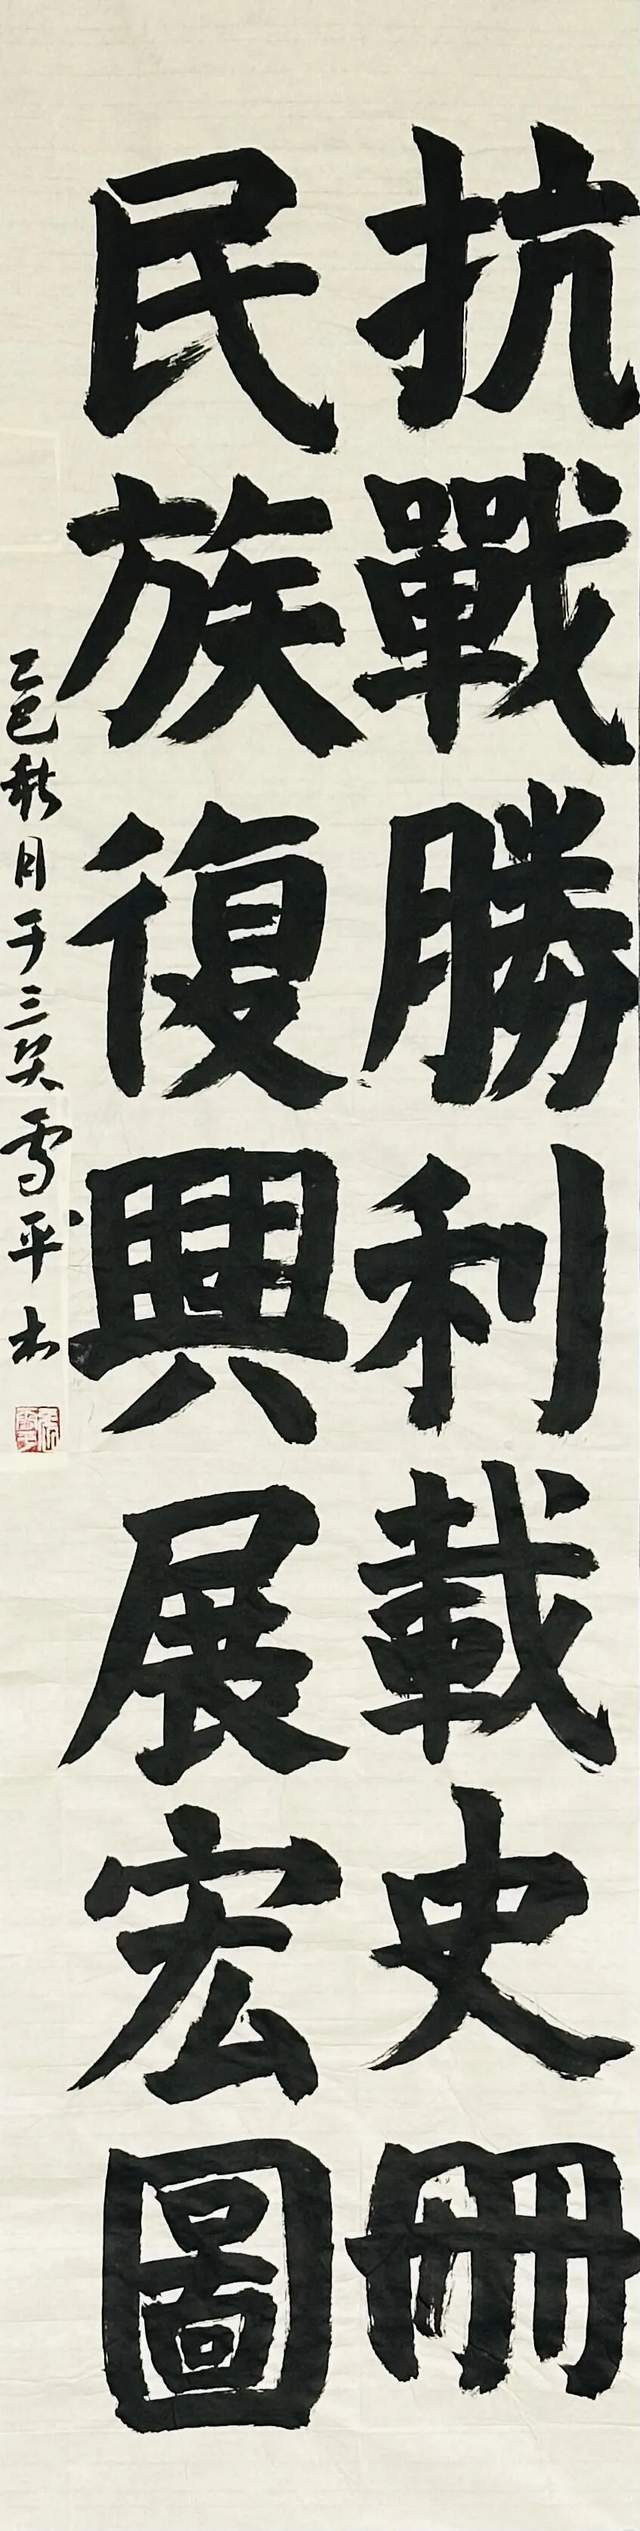 抗戰勝利載史冊
民族復興展宏圖
乙巳秋月于三吴雪平书